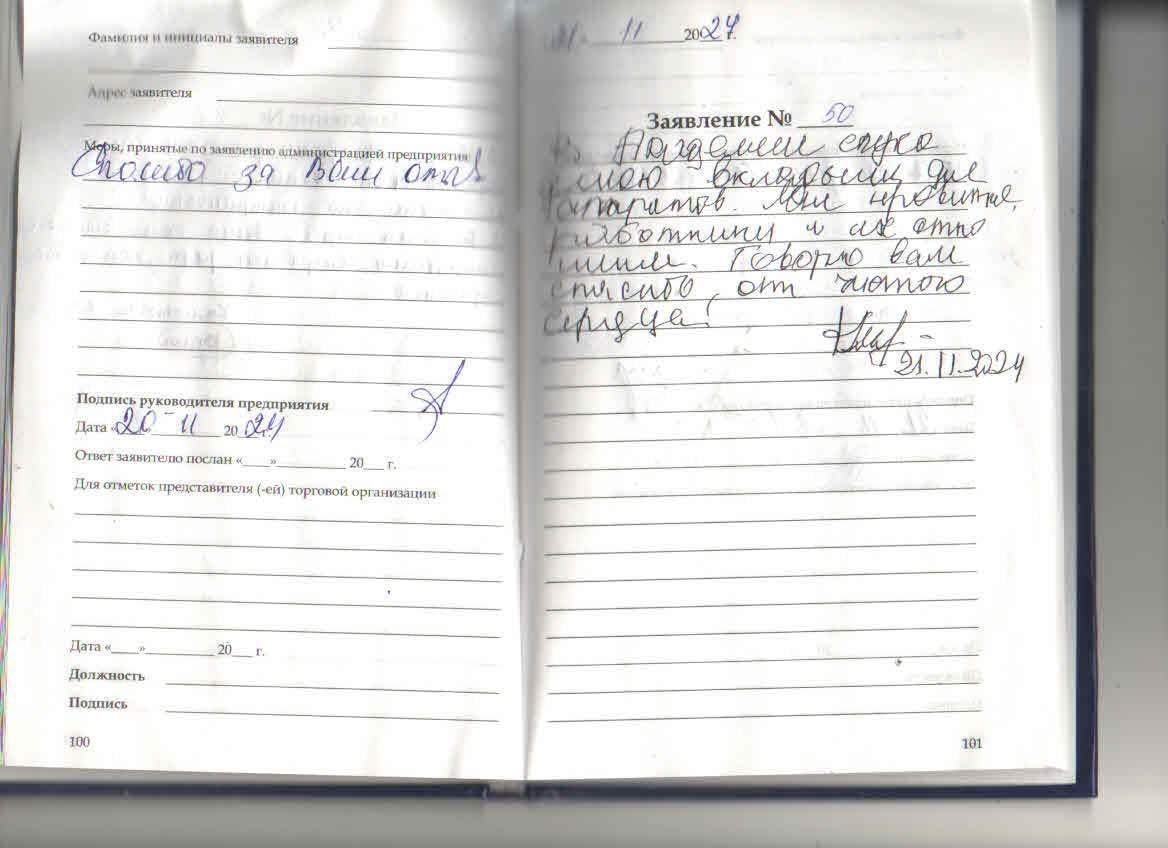 Фамилия и инициалы заявителя
Адрес заявителя
Меры, принятые по заявлению администрацией предприятия
Спасибо за Ваш отзыв!
Подпись руководителя предприятия
Дата «20» 11 2024 г.
Ответ заявителю послан «___»__________ 20___ г.
Для отметок представителя (-ей) торговой организации
Дата «____»__________ 20___ г.
Должность
Подпись
100
21 11 2024 г.
Заявление № 50
В Академии слуха
вкладыши для
аппаратов. Мне нравится,
работники и их отно
шение. Говорю вам
спасибо, от чистого
сердца!
21.11.2024
101